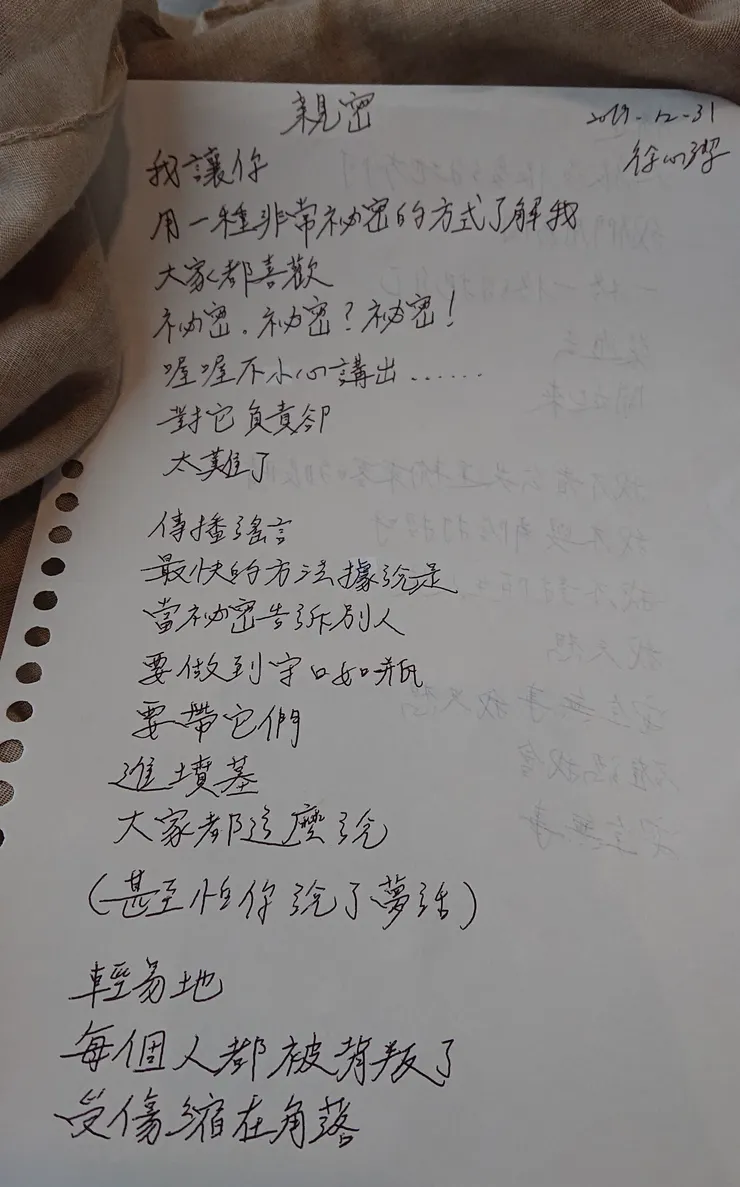 親密
2019-12-31
徐心澤
我讓你
用一種非常祕密的方式了解我
大家都喜歡
祕密.祕密?祕密!
喔喔不小心講出......
對它負責卻
太難了
傳播謠言
最快的方法據說是
當祕密告訴別人
要做到守口如瓶
要帶它們
進墳墓
大家都這麼說
(甚至怕你說了夢話)
輕易地
每個人都被背叛了
受傷縮在角落